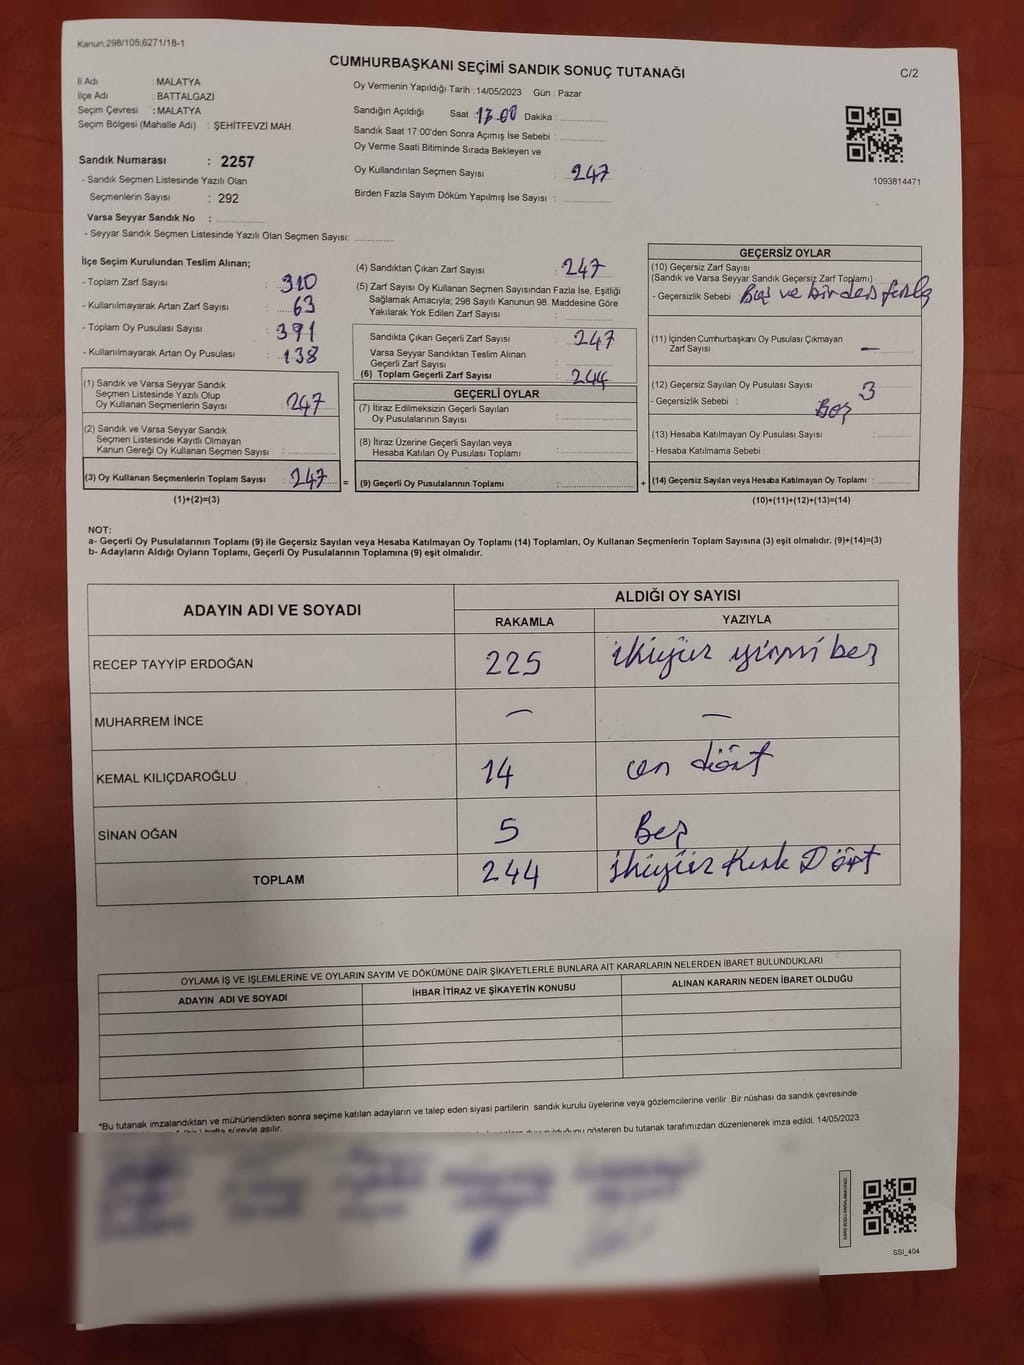 Kanun;298/105;6271/18-1
CUMHURBAŞKANI SEÇİMİ SANDIK SONUÇ TUTANAĞI
C/2
İl Adı : MALATYA
İlçe Adı : BATTALGAZİ
Seçim Çevresi : MALATYA
Seçim Bölgesi (Mahalle Adı) : ŞEHİTFEVZİ MAH.
Sandık Numarası : 2257
- Sandık Seçmen Listesinde Yazılı Olan
Seçmenlerin Sayısı : 292
Varsa Seyyar Sandık No :
- Seyyar Sandık Seçmen Listesinde Yazılı Olan Seçmen Sayısı:
Oy Vermenin Yapıldığı Tarih : 14/05/2023 Gün : Pazar
Sandığın Açıldığı Saat : 17.00 Dakika :
Sandık Saat 17:00'den Sonra Açımış İse Sebebi :
Oy Verme Saati Bitiminde Sırada Bekleyen ve
Oy Kullandırılan Seçmen Sayısı : 247
Birden Fazla Sayım Döküm Yapılmış İse Sayısı :
1093814471
İlçe Seçim Kurulundan Teslim Alınan;
- Toplam Zarf Sayısı : 310
- Kullanılmayarak Artan Zarf Sayısı : 63
- Toplam Oy Pusulası Sayısı : 391
- Kullanılmayarak Artan Oy Pusulası : 138
(1) Sandık ve Varsa Seyyar Sandık
Seçmen Listesinde Yazılı Olup
Oy Kullanan Seçmenlerin Sayısı : 247
(2) Sandık ve Varsa Seyyar Sandık
Seçmen Listesinde Kayıtlı Olmayan
Kanun Gereği Oy Kullanan Seçmen Sayısı :
(3) Oy Kullanan Seçmenlerin Toplam Sayısı : 247 =
(1)+(2)=(3)
(4) Sandıktan Çıkan Zarf Sayısı : 247
(5) Zarf Sayısı Oy Kullanan Seçmen Sayısından Fazla İse, Eşitliği
Sağlamak Amacıyla; 298 Sayılı Kanunun 98. Maddesine Göre
Yakılarak Yok Edilen Zarf Sayısı :
Sandıkta Çıkan Geçerli Zarf Sayısı : 247
Varsa Seyyar Sandıktan Teslim Alınan
Geçerli Zarf Sayısı :
(6) Toplam Geçerli Zarf Sayısı : 244
GEÇERLİ OYLAR
(7) İtiraz Edilmeksizin Geçerli Sayılan
Oy Pusulalarının Sayısı :
(8) İtiraz Üzerine Geçerli Sayılan veya
Hesaba Katılan Oy Pusulası Toplamı :
(9) Geçerli Oy Pusulalarının Toplamı : +
GEÇERSİZ OYLAR
(10) Geçersiz Zarf Sayısı
(Sandık ve Varsa Seyyar Sandık Geçersiz Zarf Toplamı) :
- Geçersizlik Sebebi : Boş ve birden fazla
(11) İçinden Cumhurbaşkanı Oy Pusulası Çıkmayan
Zarf Sayısı : —
(12) Geçersiz Sayılan Oy Pusulası Sayısı : 3
- Geçersizlik Sebebi : Boş
(13) Hesaba Katılmayan Oy Pusulası Sayısı :
- Hesaba Katılmama Sebebi :
(14) Geçersiz Sayılan veya Hesaba Katılmayan Oy Toplamı :
(10)+(11)+(12)+(13)=(14)
NOT:
a- Geçerli Oy Pusulalarının Toplamı (9) ile Geçersiz Sayılan veya Hesaba Katılmayan Oy Toplamı (14) Toplamları, Oy Kullanan Seçmenlerin Toplam Sayısına (3) eşit olmalıdır. (9)+(14)=(3)
b- Adayların Aldığı Oyların Toplamı, Geçerli Oy Pusulalarının Toplamına (9) eşit olmalıdır.
ADAYIN ADI VE SOYADI ALDIĞI OY SAYISI
RAKAMLA YAZIYLA
RECEP TAYYİP ERDOĞAN 225 ikiyüz yirmi beş
MUHARREM İNCE — —
KEMAL KILIÇDAROĞLU 14 on dört
SİNAN OĞAN 5 Beş
TOPLAM 244 ikiyüz Kırk Dört
OYLAMA İŞ VE İŞLEMLERİNE VE OYLARIN SAYIM VE DÖKÜMÜNE DAİR ŞİKAYETLERLE BUNLARA AİT KARARLARIN NELERDEN İBARET BULUNDUKLARI
ADAYIN ADI VE SOYADI İHBAR İTİRAZ VE ŞİKAYETİN KONUSU ALINAN KARARIN NEDEN İBARET OLDUĞU
*Bu tutanak imzalandıktan ve mühürlendikten sonra seçime katılan adayların ve talep eden siyasi partilerin sandık kurulu üyelerine veya gözlemcilerine verilir .Bir nüshası da sandık çevresinde
hafta süreyle asılır. gösteren bu tutanak tarafımızdan düzenlenerek imza edildi. 14/05/2023
SSI_404